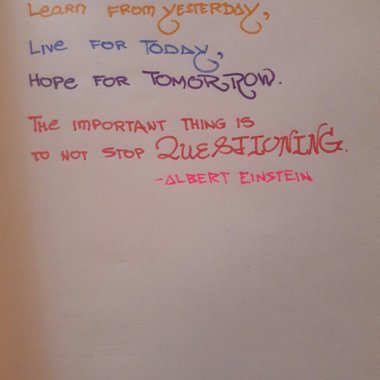 LEARN FROM YESTERDAY,
LIVE FOR TODAY,
HOPE FOR TOMORROW.
THE IMPORTANT THING IS
TO NOT STOP QUESTIONING.
-ALBERT EINSTEIN